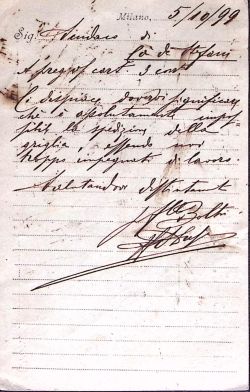 Milano, 5/10/99
Sig. Sindaco di
Cà de Stefani
A preg. cart. 3 corr.
Ci dispiace dovervi significare
che è assolutamente impos
sibile la spedizione della
griglia, essendo noi
troppo impegnati di lavoro.
Salutandovi distintamente